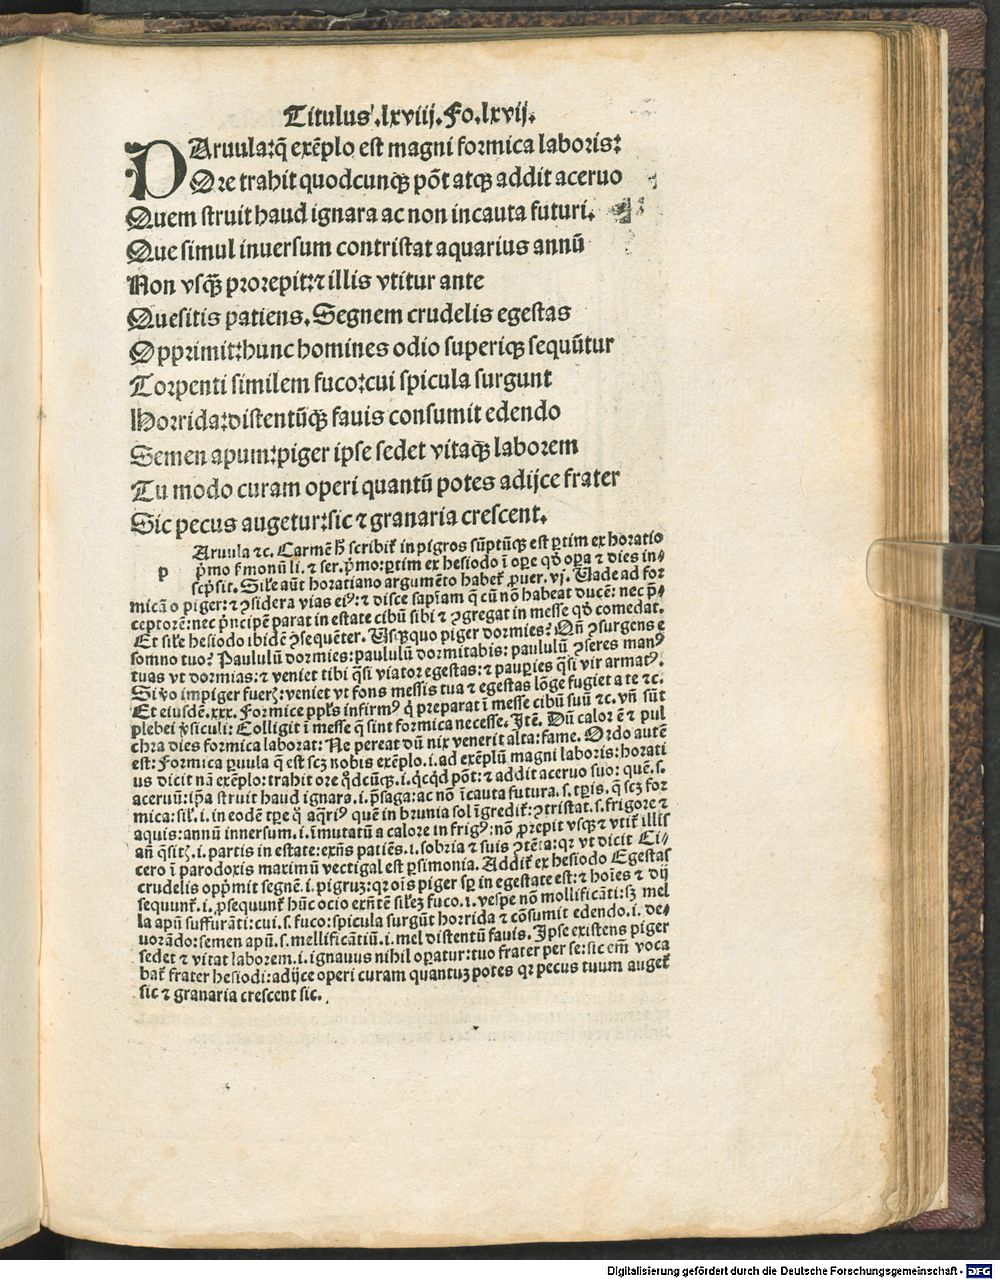 Titulus .lxviij. Fo. lxvij.
PAruula: q̄ exēplo est magni formica laboris:
Ore trahit quodcunqꝫ pōt atqꝫ addit aceruo
Quem struit haud ignara ac non incauta futuri.
Que simul inuersum contristat aquarius annū
Non vsqꝫ prorepit: ⁊ illis vtitur ante
Quesitis patiens. Segnem crudelis egestas
Opprimit: hunc homines odio superiqꝫ sequūtur
Torpenti similem fuco: cui spicula surgunt
Horrida: distentūqꝫ fauis consumit edendo
Semen apum: piger ipse sedet vitaqꝫ laborem
Tu modo curam operi quantū potes adijce frater
Sic pecus augetur: sic ⁊ granaria crescent.
p Aruula ⁊c. Carmē ħ scribit̄ in pigros sūptūqꝫ est ꝑtim ex horatio
p̄mo ẜmonū li. ⁊ ser. p̄mo: ꝑtim ex hesiodo ī oꝑe qđ oꝑa ⁊ dies in-
scp̄sit. Sil̄e aūt horatiano argumēto habet̄ ꝓuer. vj. Uade ad for
micā o piger: ⁊ ꝯsidera vias eiꝰ: ⁊ disce sapīam q̄ cū nō habeat ducē: nec p̄-
ceptorē: nec pⁱncipē parat in estate cibū sibi ⁊ ꝯgregat in messe qđ comedat.
Et sil̄e hesiodo ibidē ꝯsequēter. Usqꝫquo piger dormies? Qn̄ ꝯsurgens e
somno tuo? Paululū dormies: paululū dormitabis: paululū ꝯseres manꝰ
tuas vt dormias: ⁊ veniet tibi q̄si viator egestas: ⁊ pauꝑies q̄si vir armatꝰ.
Si v̊o impiger fuerꝭ: veniet vt fons messis tua ⁊ egestas lōge fugiet a te ⁊c.
Et eiusdē .xxx. Formice ppl̄s infirmꝰ q̇ preparat ī messe cibū suū ⁊c. vn̄ sūt
plebei v̓siculi: Colligit ī messe q̄ sint formica necesse. Itē. Dū calor ē ⁊ pul
chra dies formica laborat: Ne pereat dū nix venerit alta: fame. Ordo autē
est: Formica ꝑuula q̄ est scꝫ nobis exēplo .i. ad exēplū magni laboris: horati
us dicit nā exēplo: trahit ore q̊dcūqꝫ .i. q̇cq̇d pōt: ⁊ addit aceruo suo: quē .s.
aceruū: ip̄a struit haud ignara .i. p̄saga: ac nō īcauta futura .s. tꝑis. q̄ scꝫ for
mica: sil̄ .i. in eodē tꝑe q̊ aq̄riꝰ quē in bruma sol īgredit̄: ꝯtristat .s. frigore ⁊
aquis: annū innersum .i. īmutatū a calore in frigꝰ: nō ꝓrepit vsqꝫ ⁊ vtit̄ illis
an̄ q̄sitꝭ .i. partis in estate: exn̄s patiēs .i. sobria ⁊ suis ꝯtēta: qꝛ vt dicit Ci-
cero ī parodoxis maximū vectigal est ꝑsimonia. Addit̄ ex hesiodo Egestas
crudelis opp̄mit segnē .i. pigruꝫ: qꝛ oīs piger sꝑ in egestate est: ⁊ hoīes ⁊ dij
sequunt̄ .i. ꝓsequunt̄ hūc ocio exn̄tē sil̄eꝫ fuco .i. vespe nō mollificāti: sꝫ mel
la apū suffurāti: cui .s. fuco: spicula surgūt horrida ⁊ cōsumit edendo .i. de-
uorādo: semen apū .s. mellificātiū .i. mel distentū fauis. Ipse existens piger
sedet ⁊ vitat laborem .i. ignauus nihil oꝑatur: tuo frater per se: sic em̄ voca
bat̄ frater hesiodi: adijce operi curam quantuꝫ potes qꝛ pecus tuum auget̄
sic ⁊ granaria crescent sic.
Digitalisierung gefördert durch die Deutsche Forschungsgemeinschaft - DFG